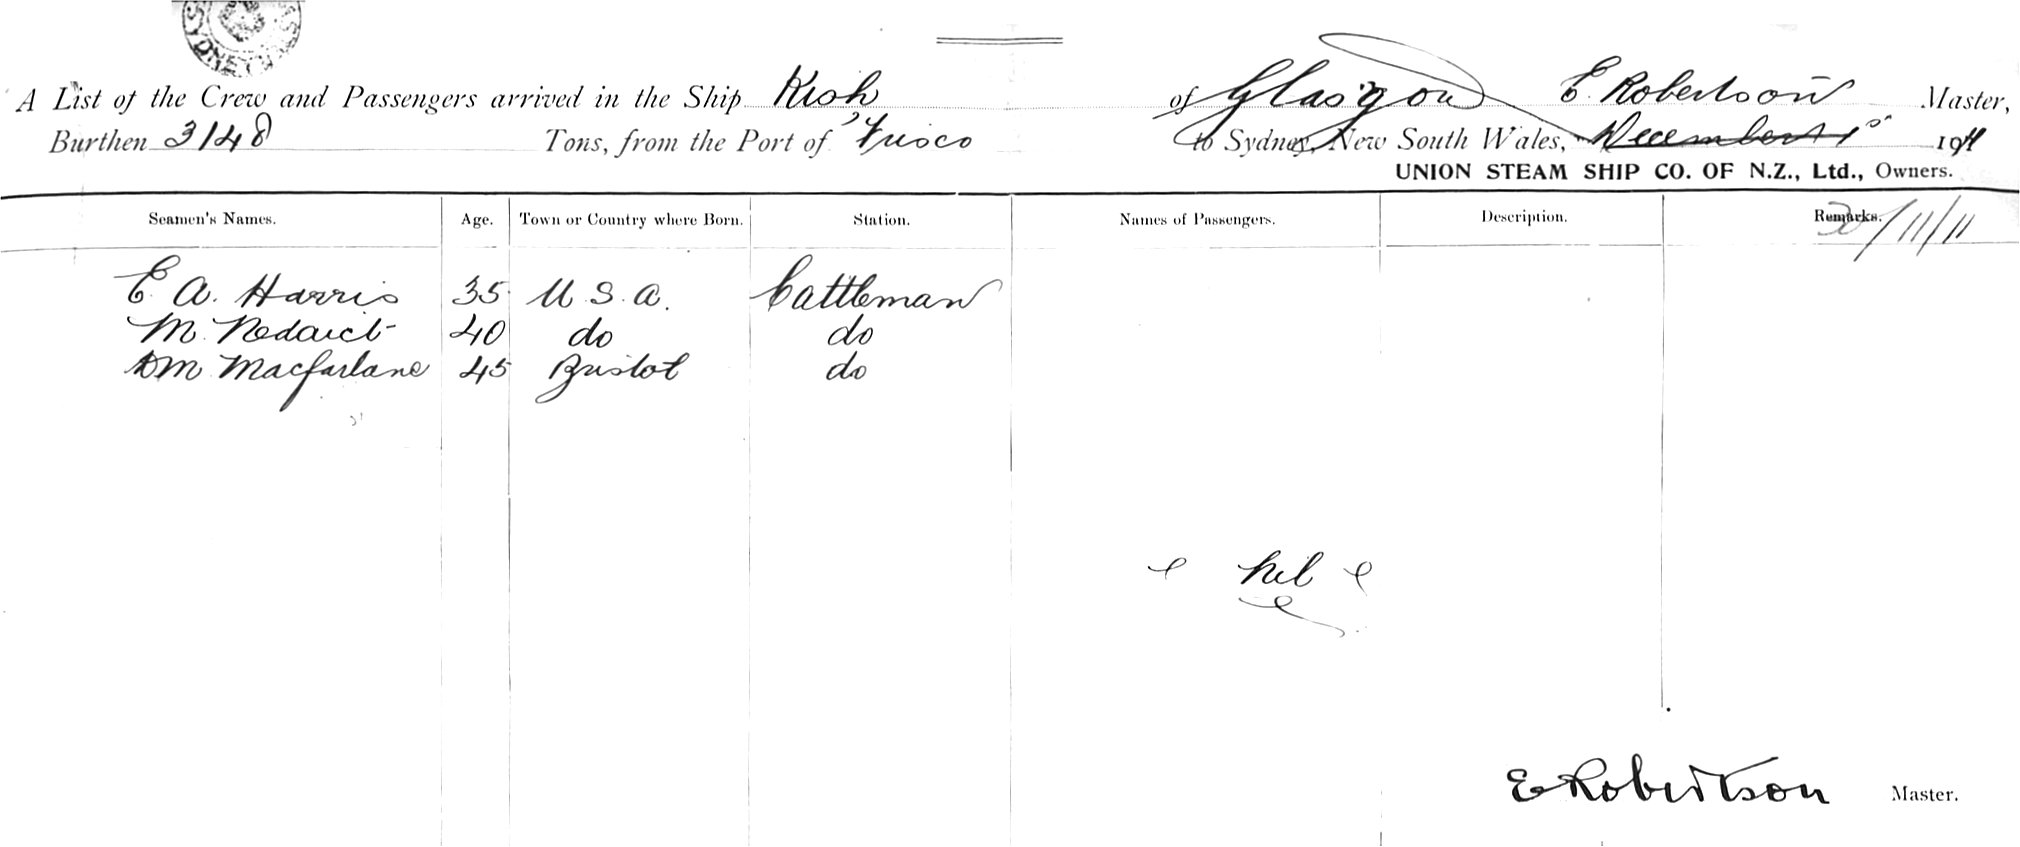 SYDNEY
A List of the Crew and Passengers arrived in the Ship Kish of Glasgow E. Robertson Master,
Burthen 3148 Tons, from the Port of 'Frisco to Sydney, New South Wales, December 1st 1911
UNION STEAM SHIP CO. OF N.Z., Ltd., Owners.
Seamen's Names. Age. Town or Country where Born. Station. Names of Passengers. Description. Remarks.
30/11/11
E. A. Harris 35 U. S. A. Cattleman
M. 40 do do
M Macfarlane 45 Bristol do
Nil
E Robertson Master.